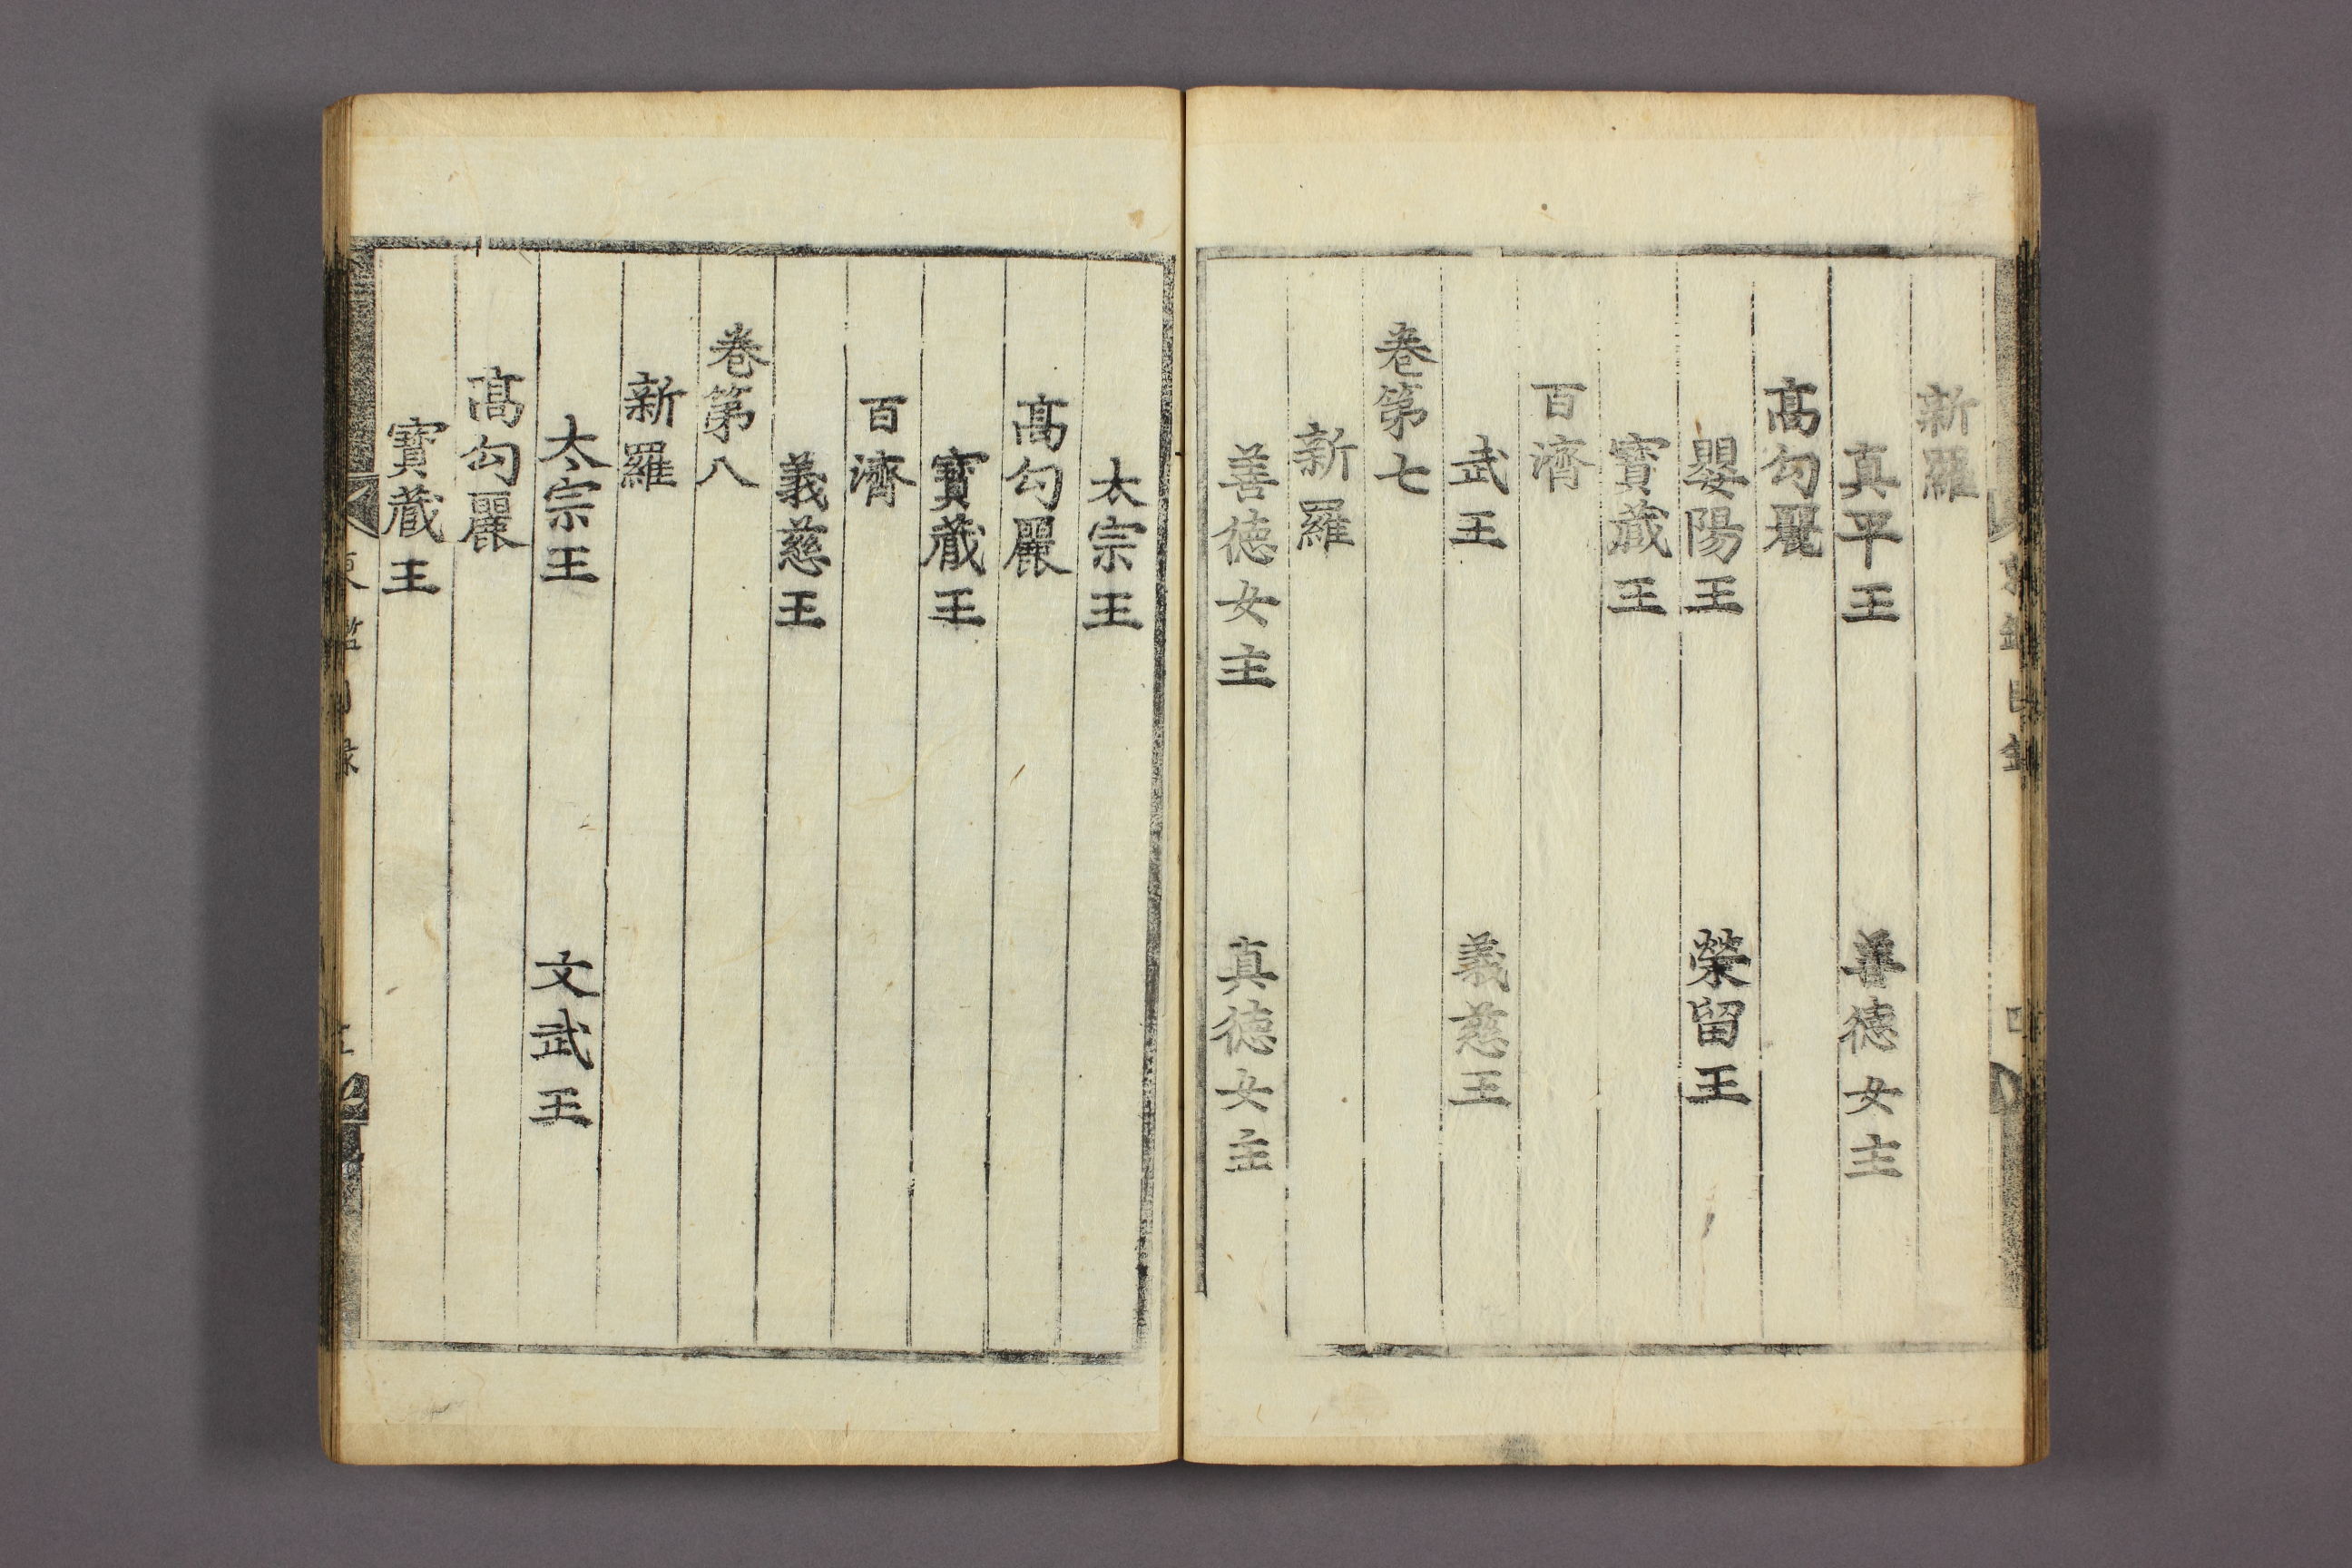 新羅
真平王 善徳女主
高勾麗
嬰陽王 榮留王
寳藏王
百濟
武王 義慈王
卷第七
新羅
善徳女主 真徳女主
太宗王
髙勾麗
寳藏王
百濟
義慈王
卷第八
新羅
太宗王 文武王
髙勾麗
寳藏王